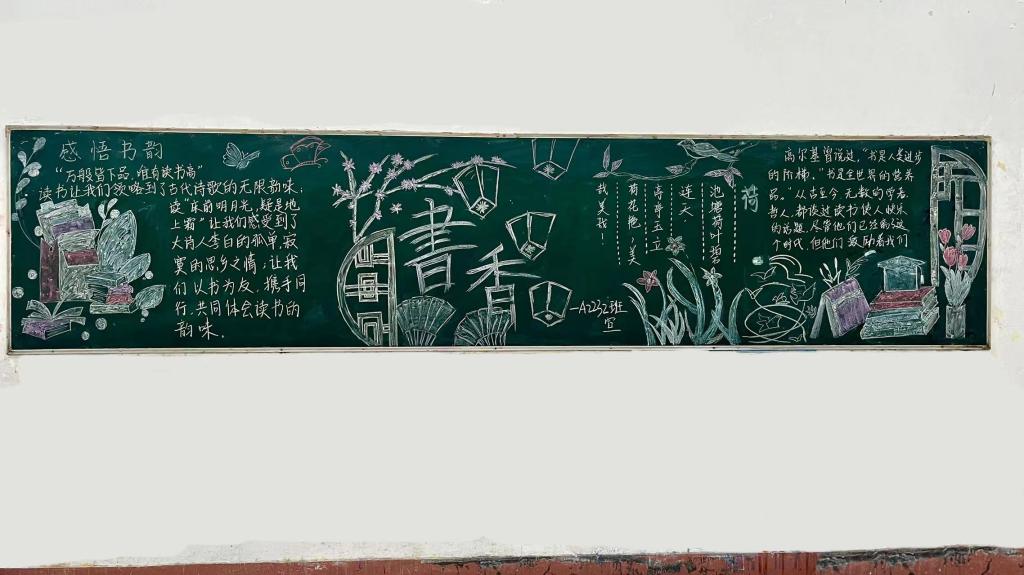 感悟书韵
"万般皆下品，唯有读书高"
读书让我们领略到了古代诗歌的无限韵味：
读"床前明月光，疑是地
上霜"让我们感受到了
大诗人李白的孤单，寂
寞的思乡之情；让我
们以书为友，携手同
行，共同体会读书的
韵味。
書香
—A232班
宣
荷
池塘荷叶碧
连天
亭亭玉立
荷花艳~美
我美我！
高尔基曾说过，"书是人类进步
的阶梯，""书是全世界的营养
品。"从古至今无数的学者，
哲人，都谈过读书使人快乐
的话题，尽管他们已经离这
个时代，但他们激励着我们